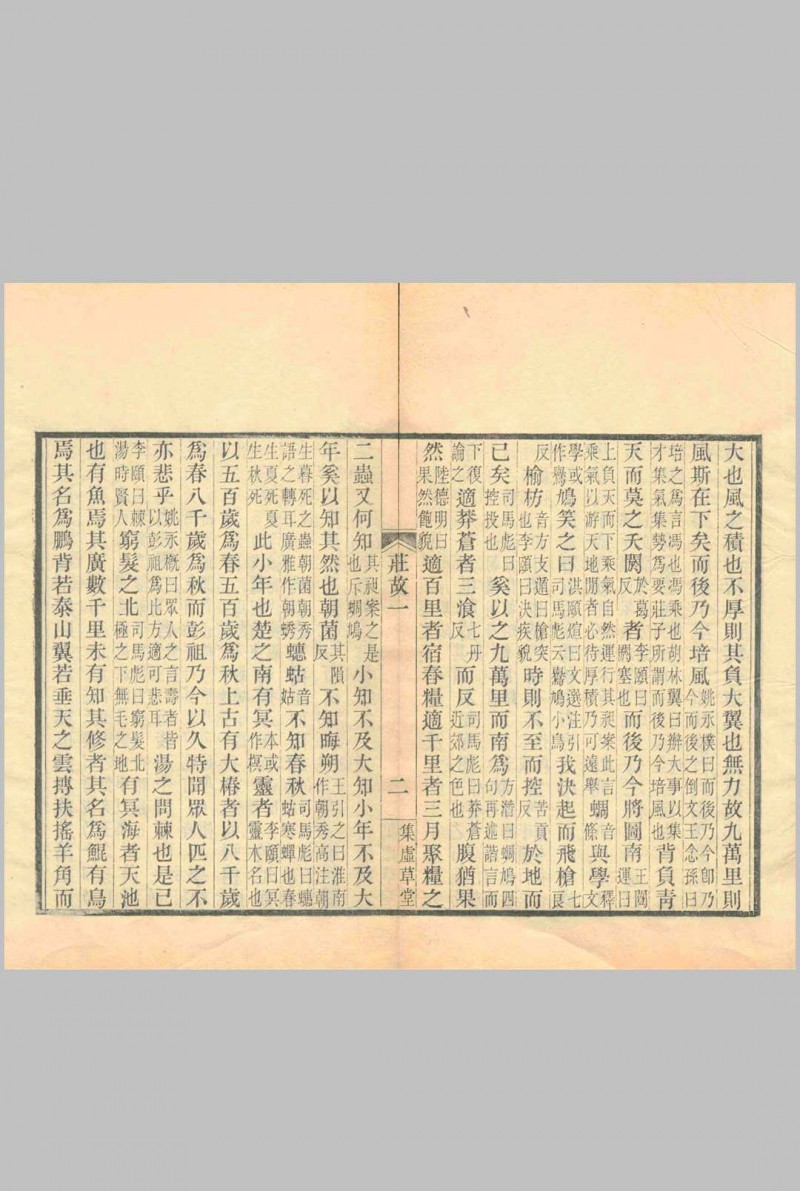 大也風之積也不厚則其負大翼也無力故九萬里則
風斯在下矣而後乃今培風姚永樸曰而後乃今卽乃今而後之倒文王念孫曰
培之爲言馮也馮乘也胡林翼曰辦大事以集才集氣集勢爲要莊子所謂而後乃今培風也背負靑
天而莫之夭閼於葛反者李頤曰閼塞也而後乃今將圖南王闓運曰
上負天而下乘氣自然運行其昶案此言乘氣以游天地閒者必待厚積乃可遠舉蜩音條與學釋文
學或作鷽鳩笑之曰洪頤煊曰文選注引司馬彪云鷽鳩小鳥我決起而飛槍七良
反榆枋音方支遁曰槍突也李頤曰決疾貌時則不至而控苦貢反於地而
已矣司馬彪曰控投也奚以之九萬里而南爲方潛曰蜩鳩四句再述諧言而
下復論之適莽蒼者三飡七丹反而反司馬彪曰莽蒼近郊之色也腹猶果
然陸德明曰果然飽貌適百里者宿舂糧適千里者三月聚糧之
莊故一 二 集虛草堂
二蟲又何知其昶案之是也斥蜩鳩小知不及大知小年不及大
年奚以知其然也朝菌其隕反不知晦朔王引之曰淮南作朝秀高注朝
生暮死之蟲朝菌朝秀語之轉耳廣雅作朝蜏蟪蛄音姑不知春秋司馬彪曰蟪蛄寒蟬也春
生夏死夏生秋死此小年也楚之南有冥本或作榠靈者李頤曰冥靈木名也
以五百歲爲春五百歲爲秋上古有大椿者以八千歲
爲春八千歲爲秋而彭祖乃今以久特聞眾人匹之不
亦悲乎姚永槪曰眾人之言壽者皆以彭祖爲比方適可悲耳湯之問棘也是已
李頤曰棘湯時賢人窮髮之北司馬彪曰窮髮北極之下無毛之地有冥海者天池
也有魚焉其廣數千里未有知其修者其名爲鯤有鳥
焉其名爲鵬背若泰山翼若垂天之雲摶扶搖羊角而